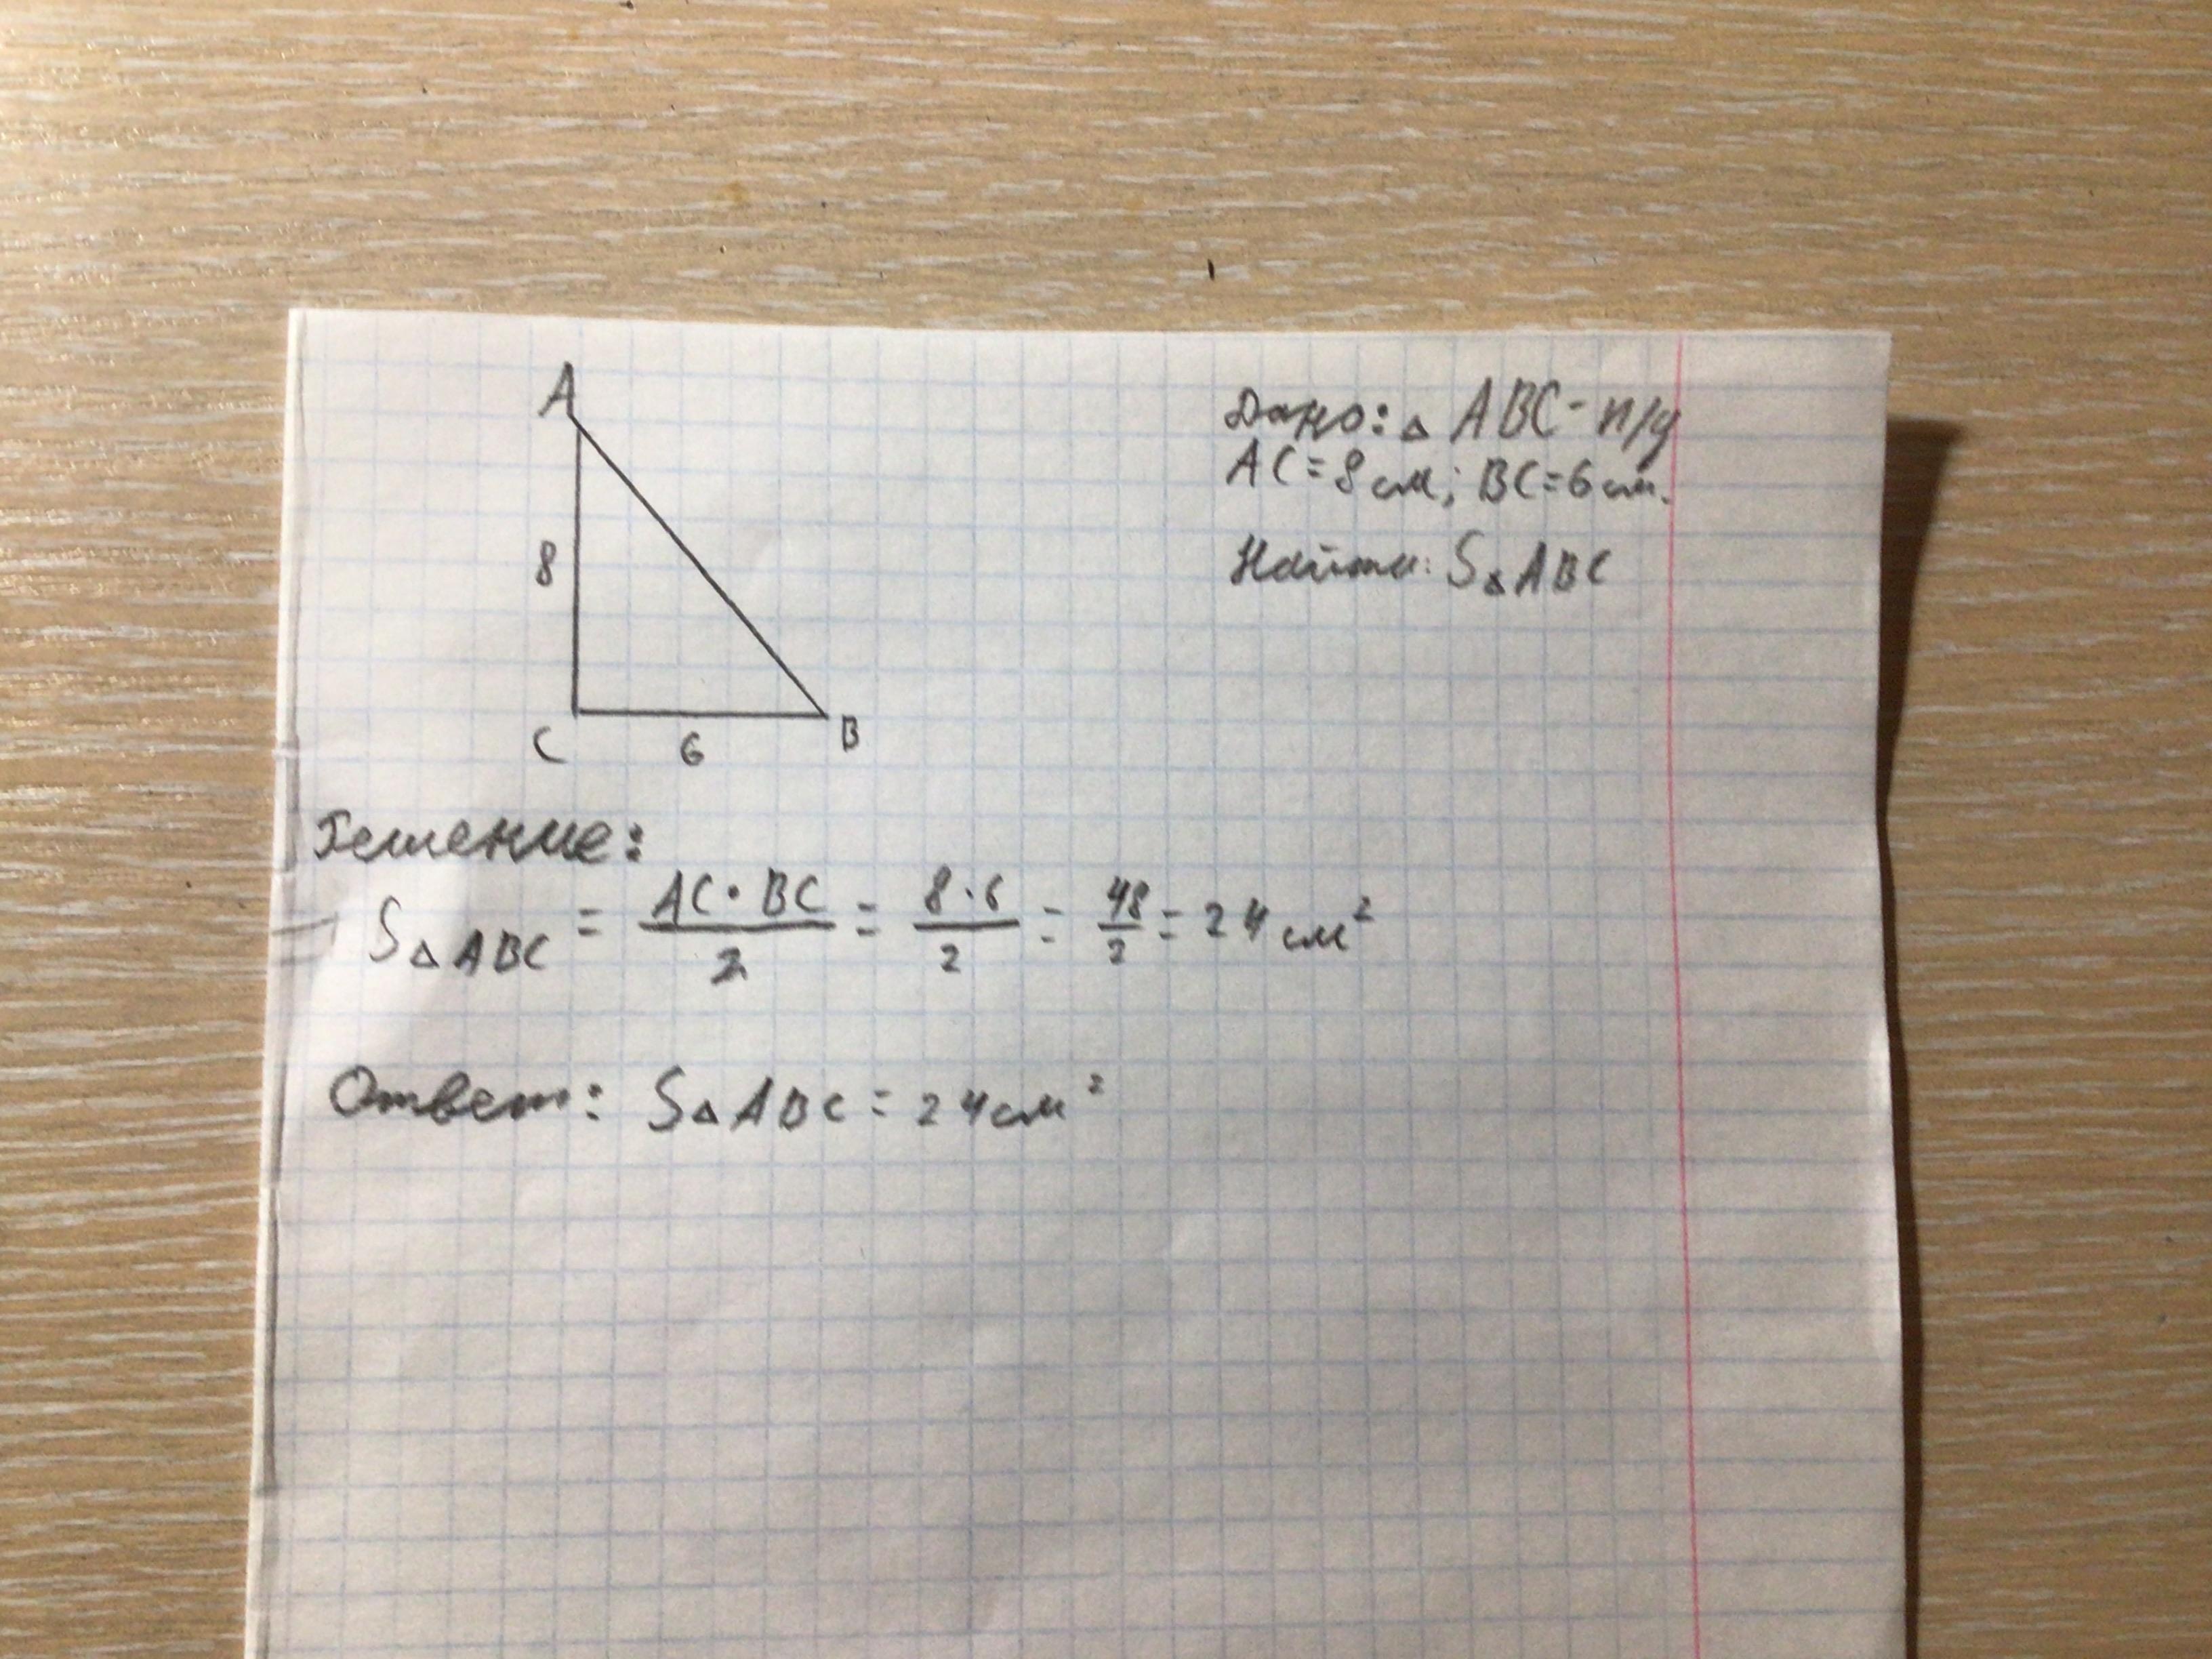 A
8
C 6 B
Дано: △ ABC - п/у
AC = 8 см; BC = 6 см.
Найти: S△ABC
Решение:
S△ABC = AC · BC / 2 = 8 · 6 / 2 = 48 / 2 = 24 см²
Ответ: S△ABC = 24 см²